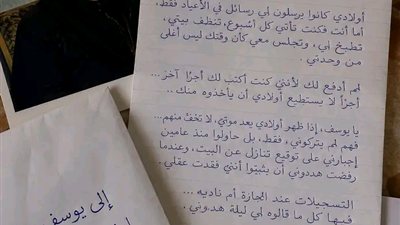 أولادي كانوا يرسلون لي رسائل في الأعياد فقط،
أما أنت فكنت تأتي كل أسبوع، تنظف بيتي،
تطبخ لي، وتجلس معي كأن وقتك ليس أغلى
من وحدتي.
لم أدفع لك لأنني كنت أكتب لك أجرًا آخر...
أجرًا لا يستطيع أولادي أن يأخذوه منك..
يا يوسف، إذا ظهر أولادي بعد موتي، لا تخف منهم...
فهم لم يتركوني، فقط، بل حاولوا منذ عامين
إجباري على توقيع تنازل عن البيت، وعندما
رفضت هددوني أن يثبتوا أنني فقدت عقلي.
التسجيلات عند الجارة أم ناديه ...
فيها كل ما قالوه لي ليلة هددوني.
إلى يوسف